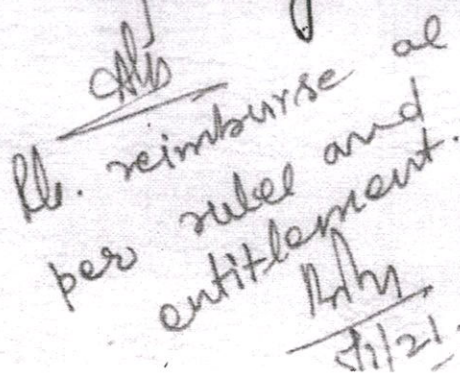 Pl. reimburse as
per rules and
entitlement.
5/1/21.